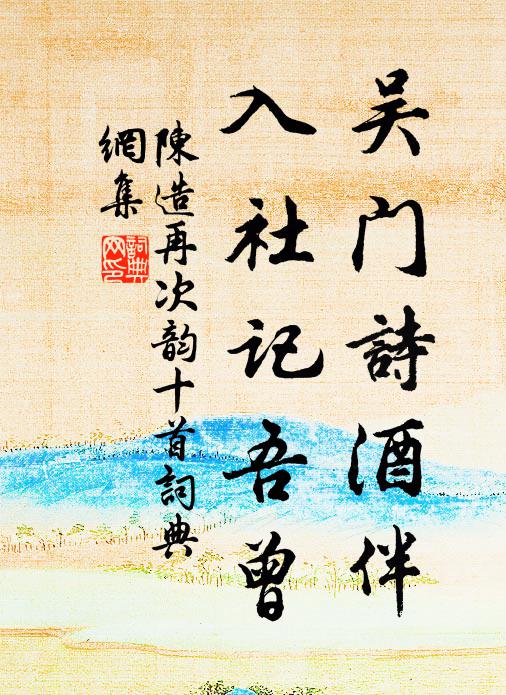 吴门詩酒伴
入社记吾曾
陳造再次韵十首詞典
網集
詞典
网印